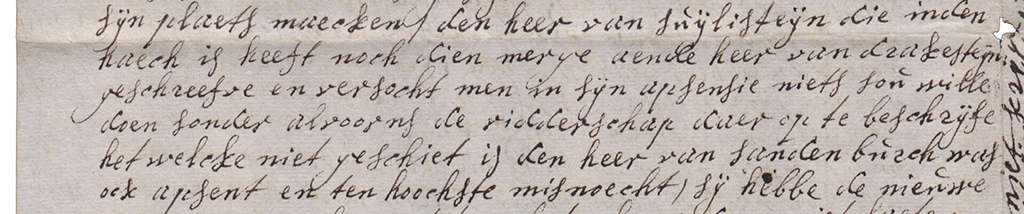 sÿn plaets maecken / den heer van suÿlisteÿn die inden
haech is heeft noch dien merge aende heer van drakesteÿn
geschreefve en versocht men in sÿn apsensie niets soú wille
doen sonder alvoorns de ridderschap daer op te beschrÿfe
het welcke niet geschiet is den heer van sandenbúrch was
ock apsent en ten hoochste misnoecht / sÿ hebbe de nieúwe